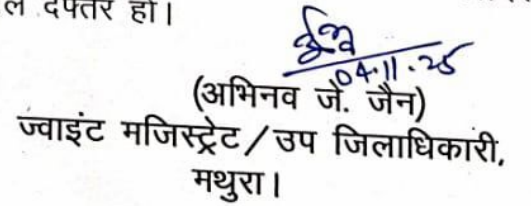 ल दफ्तर हो।
04.11.25
(अभिनव जै. जैन)
ज्वाइंट मजिस्ट्रेट / उप जिलाधिकारी,
मथुरा।